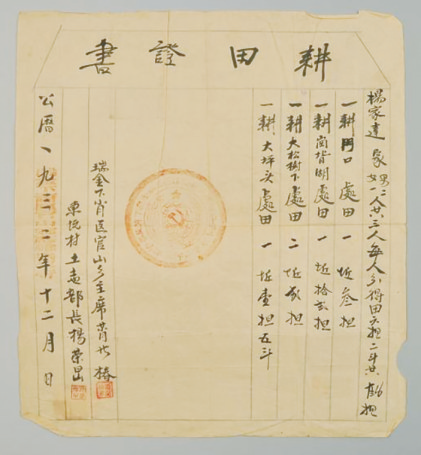 耕田證書
楊家達 家 男二人女一人共三人每人分得田六担二斗共 担
一耕門口 處田 一坵叁担
一耕崗背湖處田 一坵拾弍担
一耕大松樹下處田 二坵弍担
一耕大坪文處田 一坵壹担五斗
瑞金下肖區官山鄉主席肖 椿
東坑村土走部長楊榮
公曆一九三二年十二月 日